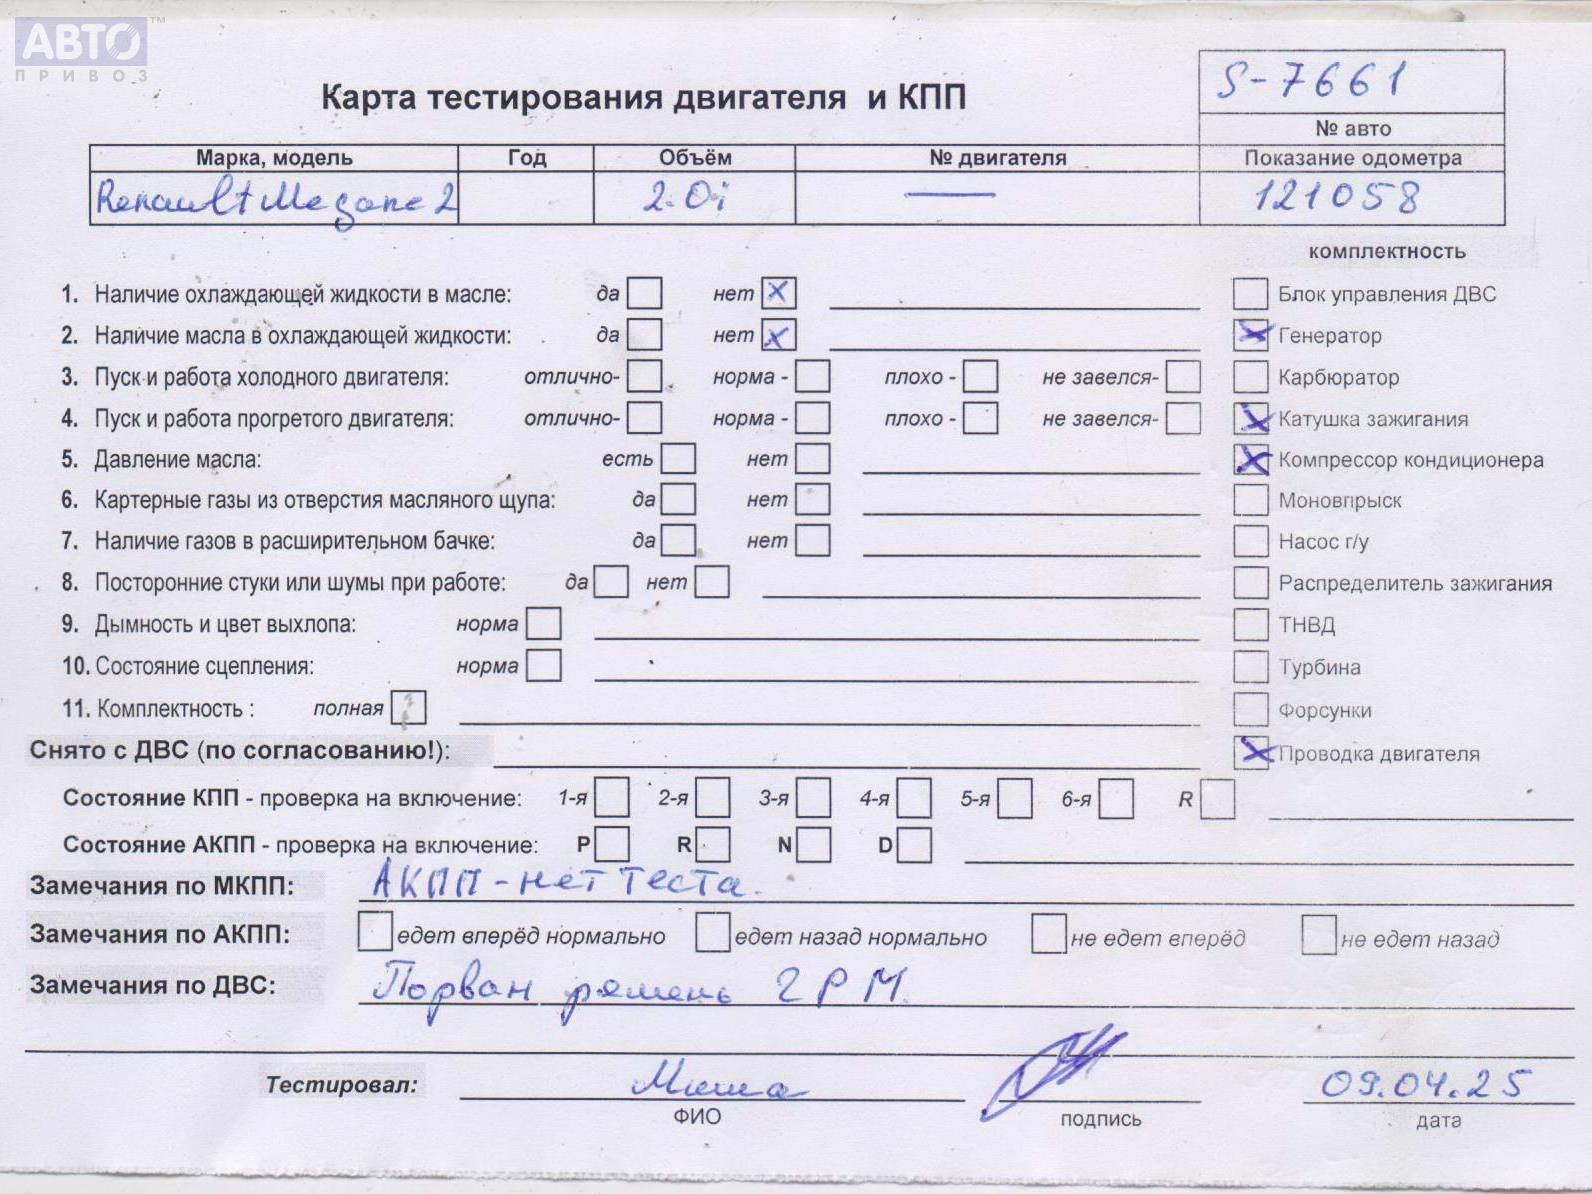 АВТО™
ПРИВОЗ
Карта тестирования двигателя и КПП
S-7661
№ авто
Марка, модель Год Объём № двигателя Показание одометра
Renault Megane 2 2.0i — 121058
комплектность
1. Наличие охлаждающей жидкости в масле: да нет x Блок управления ДВС
2. Наличие масла в охлаждающей жидкости: да нет x x Генератор
3. Пуск и работа холодного двигателя: отлично- норма - плохо - не завелся- Карбюратор
4. Пуск и работа прогретого двигателя: отлично- норма - плохо - не завелся- x Катушка зажигания
5. Давление масла: есть нет x Компрессор кондиционера
6. Картерные газы из отверстия масляного щупа: да нет Моновпрыск
7. Наличие газов в расширительном бачке: да нет Насос г/у
8. Посторонние стуки или шумы при работе: да нет Распределитель зажигания
9. Дымность и цвет выхлопа: норма ТНВД
10. Состояние сцепления: норма Турбина
11. Комплектность : полная Форсунки
Снято с ДВС (по согласованию!): x Проводка двигателя
Состояние КПП - проверка на включение: 1-я 2-я 3-я 4-я 5-я 6-я R
Состояние АКПП - проверка на включение: P R N D
Замечания по МКПП: АКПП - нет теста.
Замечания по АКПП: едет вперёд нормально едет назад нормально не едет вперёд не едет назад
Замечания по ДВС: Порван ремень ГРМ
Тестировал: Миша 09.04.25
ФИО подпись дата